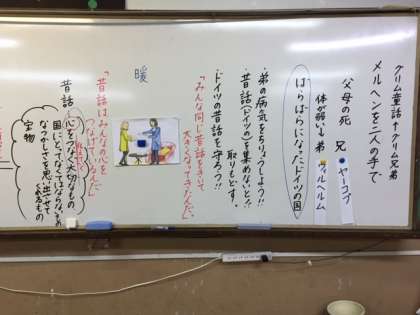 グリム童話↑グリム兄弟
メルヘンを二人の手で
父母の死 兄 ヤーコプ
体が弱い弟 ヴィルヘルム
ばらばらになったドイツの国
・弟の病気をちりょうしよう!!
・昔話(ドイツの)を集めないと!!
取りもどす。
ドイツの昔話を守ろう!!
「みんな同じ昔話をきいて
大きくなってきたんだ」
暖
「昔話はみんなの心を
つなげているんだ」
昔話 心をつなぐ大切なもの
国にとってなくてはならない
なつかしさを思い出させて
くれるもの
宝物